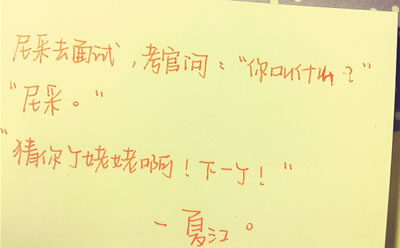 尼采去面试，考官问：“你叫什么？”
“尼采。”
“猜你丫姥姥啊！下一个！”
—夏江。